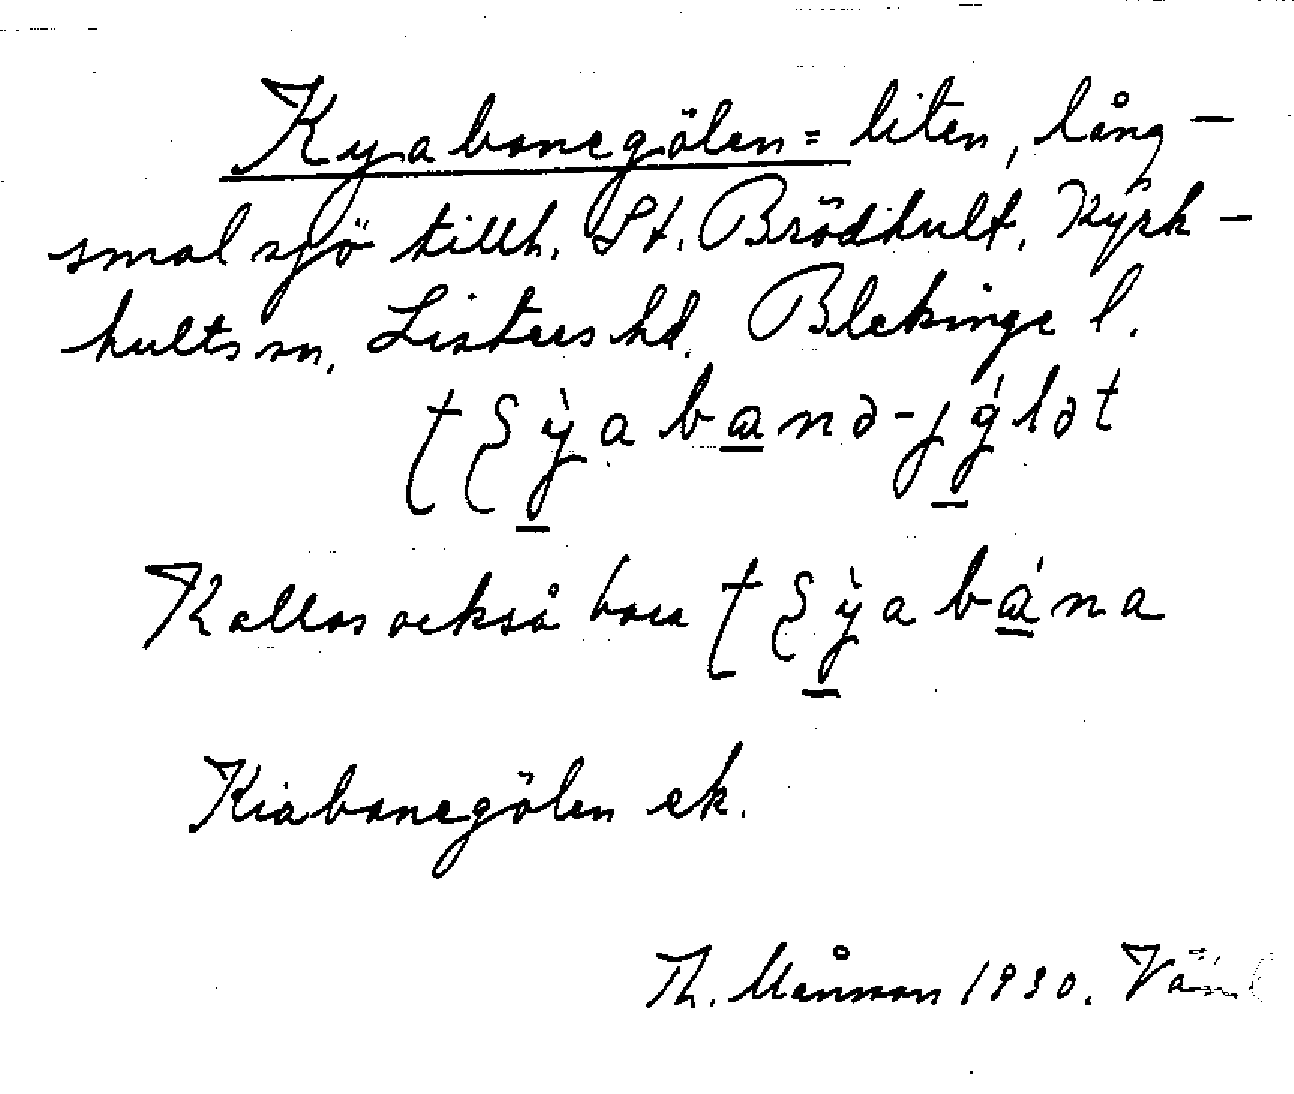 Kyabanegölen = liten, lång-
smal sjö tillh. St. Brödhult, Kyrk-
hults sn, Listers hd. Blekinge l.
Kallas också bara
Kiabanegölen ek.
Th. Månsson 1930.